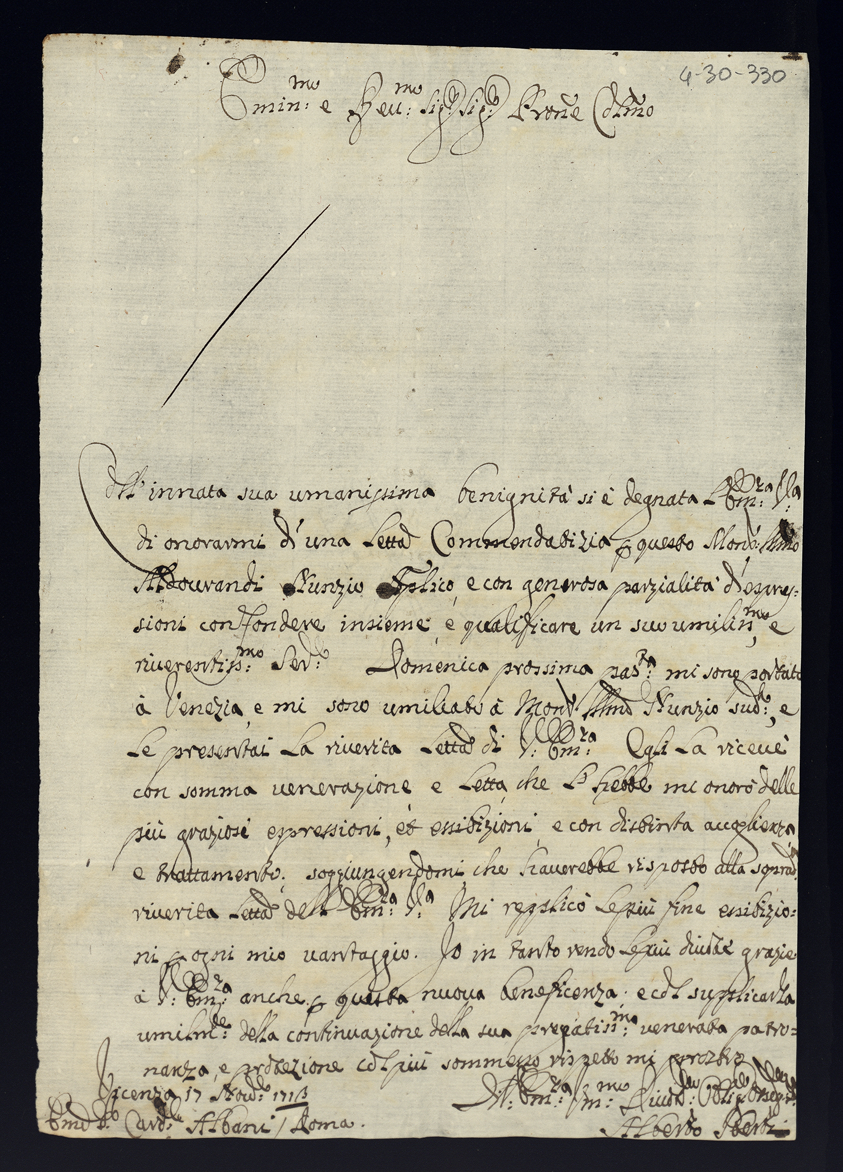 4-30-330
Emin:mo e Reu:mo Sigr Sigr: Prone Colmo
Dall' innata sua umanissima benignità si è degnata L'Em:za V:a
di onorarmi d'una Letta Commendatizia p questo Monsr Illmo
Aldourandi Nunzio Aplico, e con generosa parzialità d'espres-
sioni confondere insieme, e qualificare un suo umilin:mo, e
riuerentiss:mo Serd: Domenica prossima pas:ta mi sono portato
à Venezia, e mi sono umiliato à Monsr Illmo Nunzio sud:to, e
Le presentai La riuerita Letta di V: Em:za Egli La riceué
con somma uenerazione e Letta, che L'hebbe mi onorò delle
più graziose espressioni, et essibizioni, e con distinta accoglienza,
e trattamento; soggiungendomi che hauerebbe risposto alla soprad:
riuerita Letta dell' Em:za V:a Mi replicò Le più fine essibizio=
ni p ogni mio uantaggio. Io in tanto rendo Le più diuote grazie
à V: Em:za anche p questa nuova beneficenza; e col supplicarla
umilm:te della continuazione della sua pregiatiss:ma uenerata patro=
nanza, e protezione col più sommesso rispetto mi protesto
Vicenza 17 Nov: 1713
Di V: Em:za
Emo Sr Card:le Albani / Roma.
Alberto